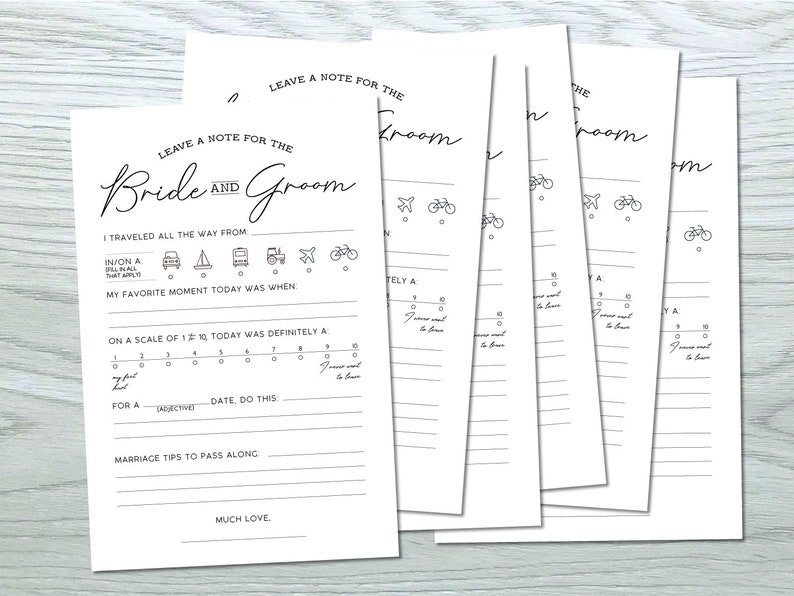 LEAVE A NOTE FOR THE
Bride AND Groom
I TRAVELED ALL THE WAY FROM:
IN/ON A:
(FILL IN ALL
THAT APPLY)
MY FAVORITE MOMENT TODAY WAS WHEN:
ON A SCALE OF 1 to 10, TODAY WAS DEFINITELY A:
1 2 3 4 5 6 7 8 9 10
my feet
hurt
I never want
to leave
FOR A (ADJECTIVE) DATE, DO THIS:
MARRIAGE TIPS TO PASS ALONG:
MUCH LOVE,
LEAVE A NOTE FOR THE
Groom
A:
9 10
I never want
to leave
9 10
I never want
to leave
10
THE
A:
9 10
I never want
to leave
A:
9 10
I never want
to leave